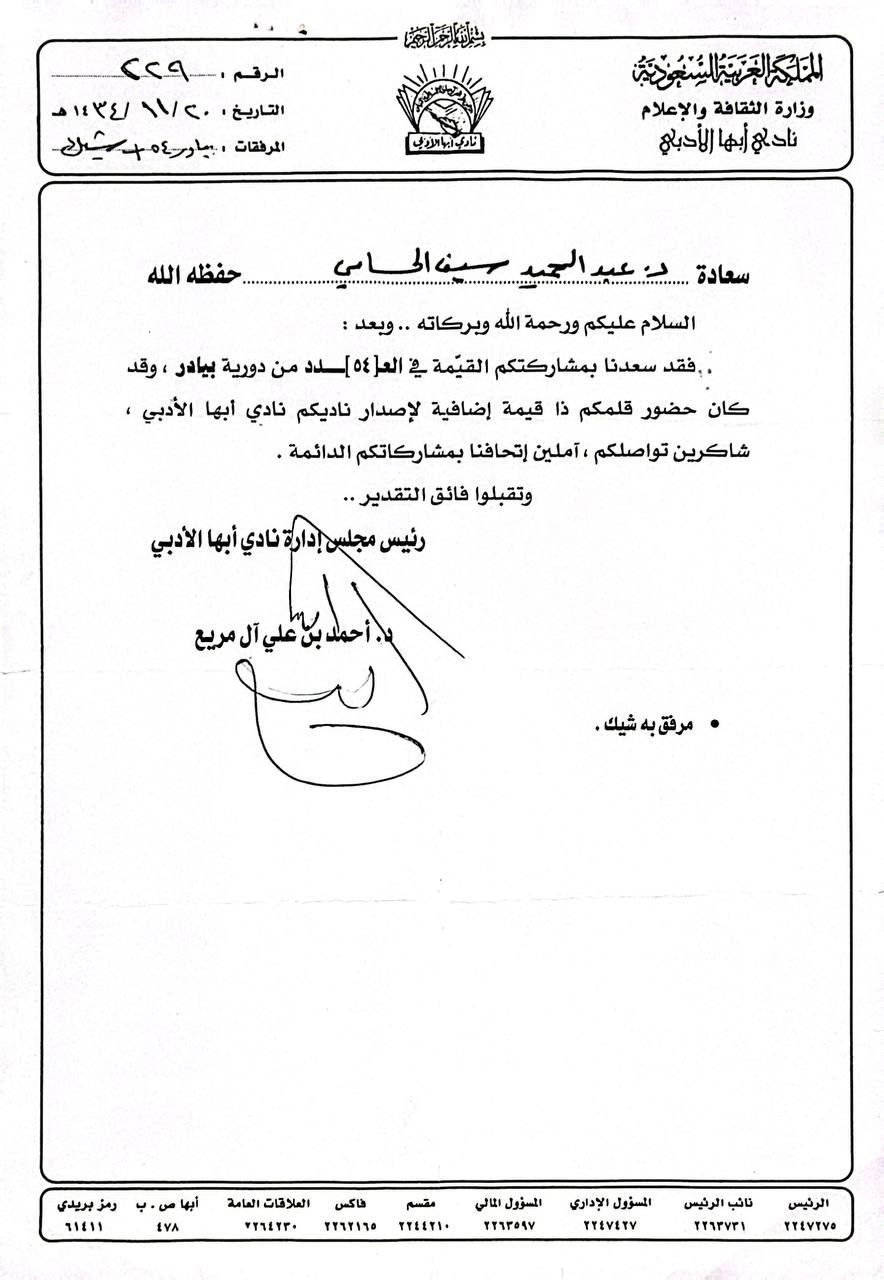 بسم الله الرحمن الرحيم
المملكة العربية السعودية
وزارة الثقافة والإعلام
نادي أبها الأدبي
نادي أبها الأدبي
الرقم : ٢٢٩
التاريخ : ٢٠ / ١١ / ١٤٣٤هـ
المرفقات : بيادر ٥٤ + شيك
سعادة د. عبد الحميد سيف الحسامي حفظه الله
السلام عليكم ورحمة الله وبركاته .. وبعد :
فقد سعدنا بمشاركتكم القيّمة في العـ[٥٤]ـدد من دورية بيادر ، وقد
كان حضور قلمكم ذا قيمة إضافية لإصدار ناديكم نادي أبها الأدبي ،
شاكرين تواصلكم ، آملين إتحافنا بمشاركاتكم الدائمة .
وتقبلوا فائق التقدير ..
رئيس مجلس إدارة نادي أبها الأدبي
د. أحمد بن علي آل مريع
• مرفق به شيك .
الرئيس نائب الرئيس المسؤول الإداري المسؤول المالي مقسم فاكس العلاقات العامة أبها ص . ب رمز بريدي
٢٢٤٧٢٧٥ ٢٢٦٣٧٣١ ٢٢٤٧٤٢٧ ٢٢٦٣٥٩٧ ٢٢٤٤٢١٠ ٢٢٦٢١٦٥ ٢٢٦٤٢٣٠ ٤٧٨ ٦١٤١١